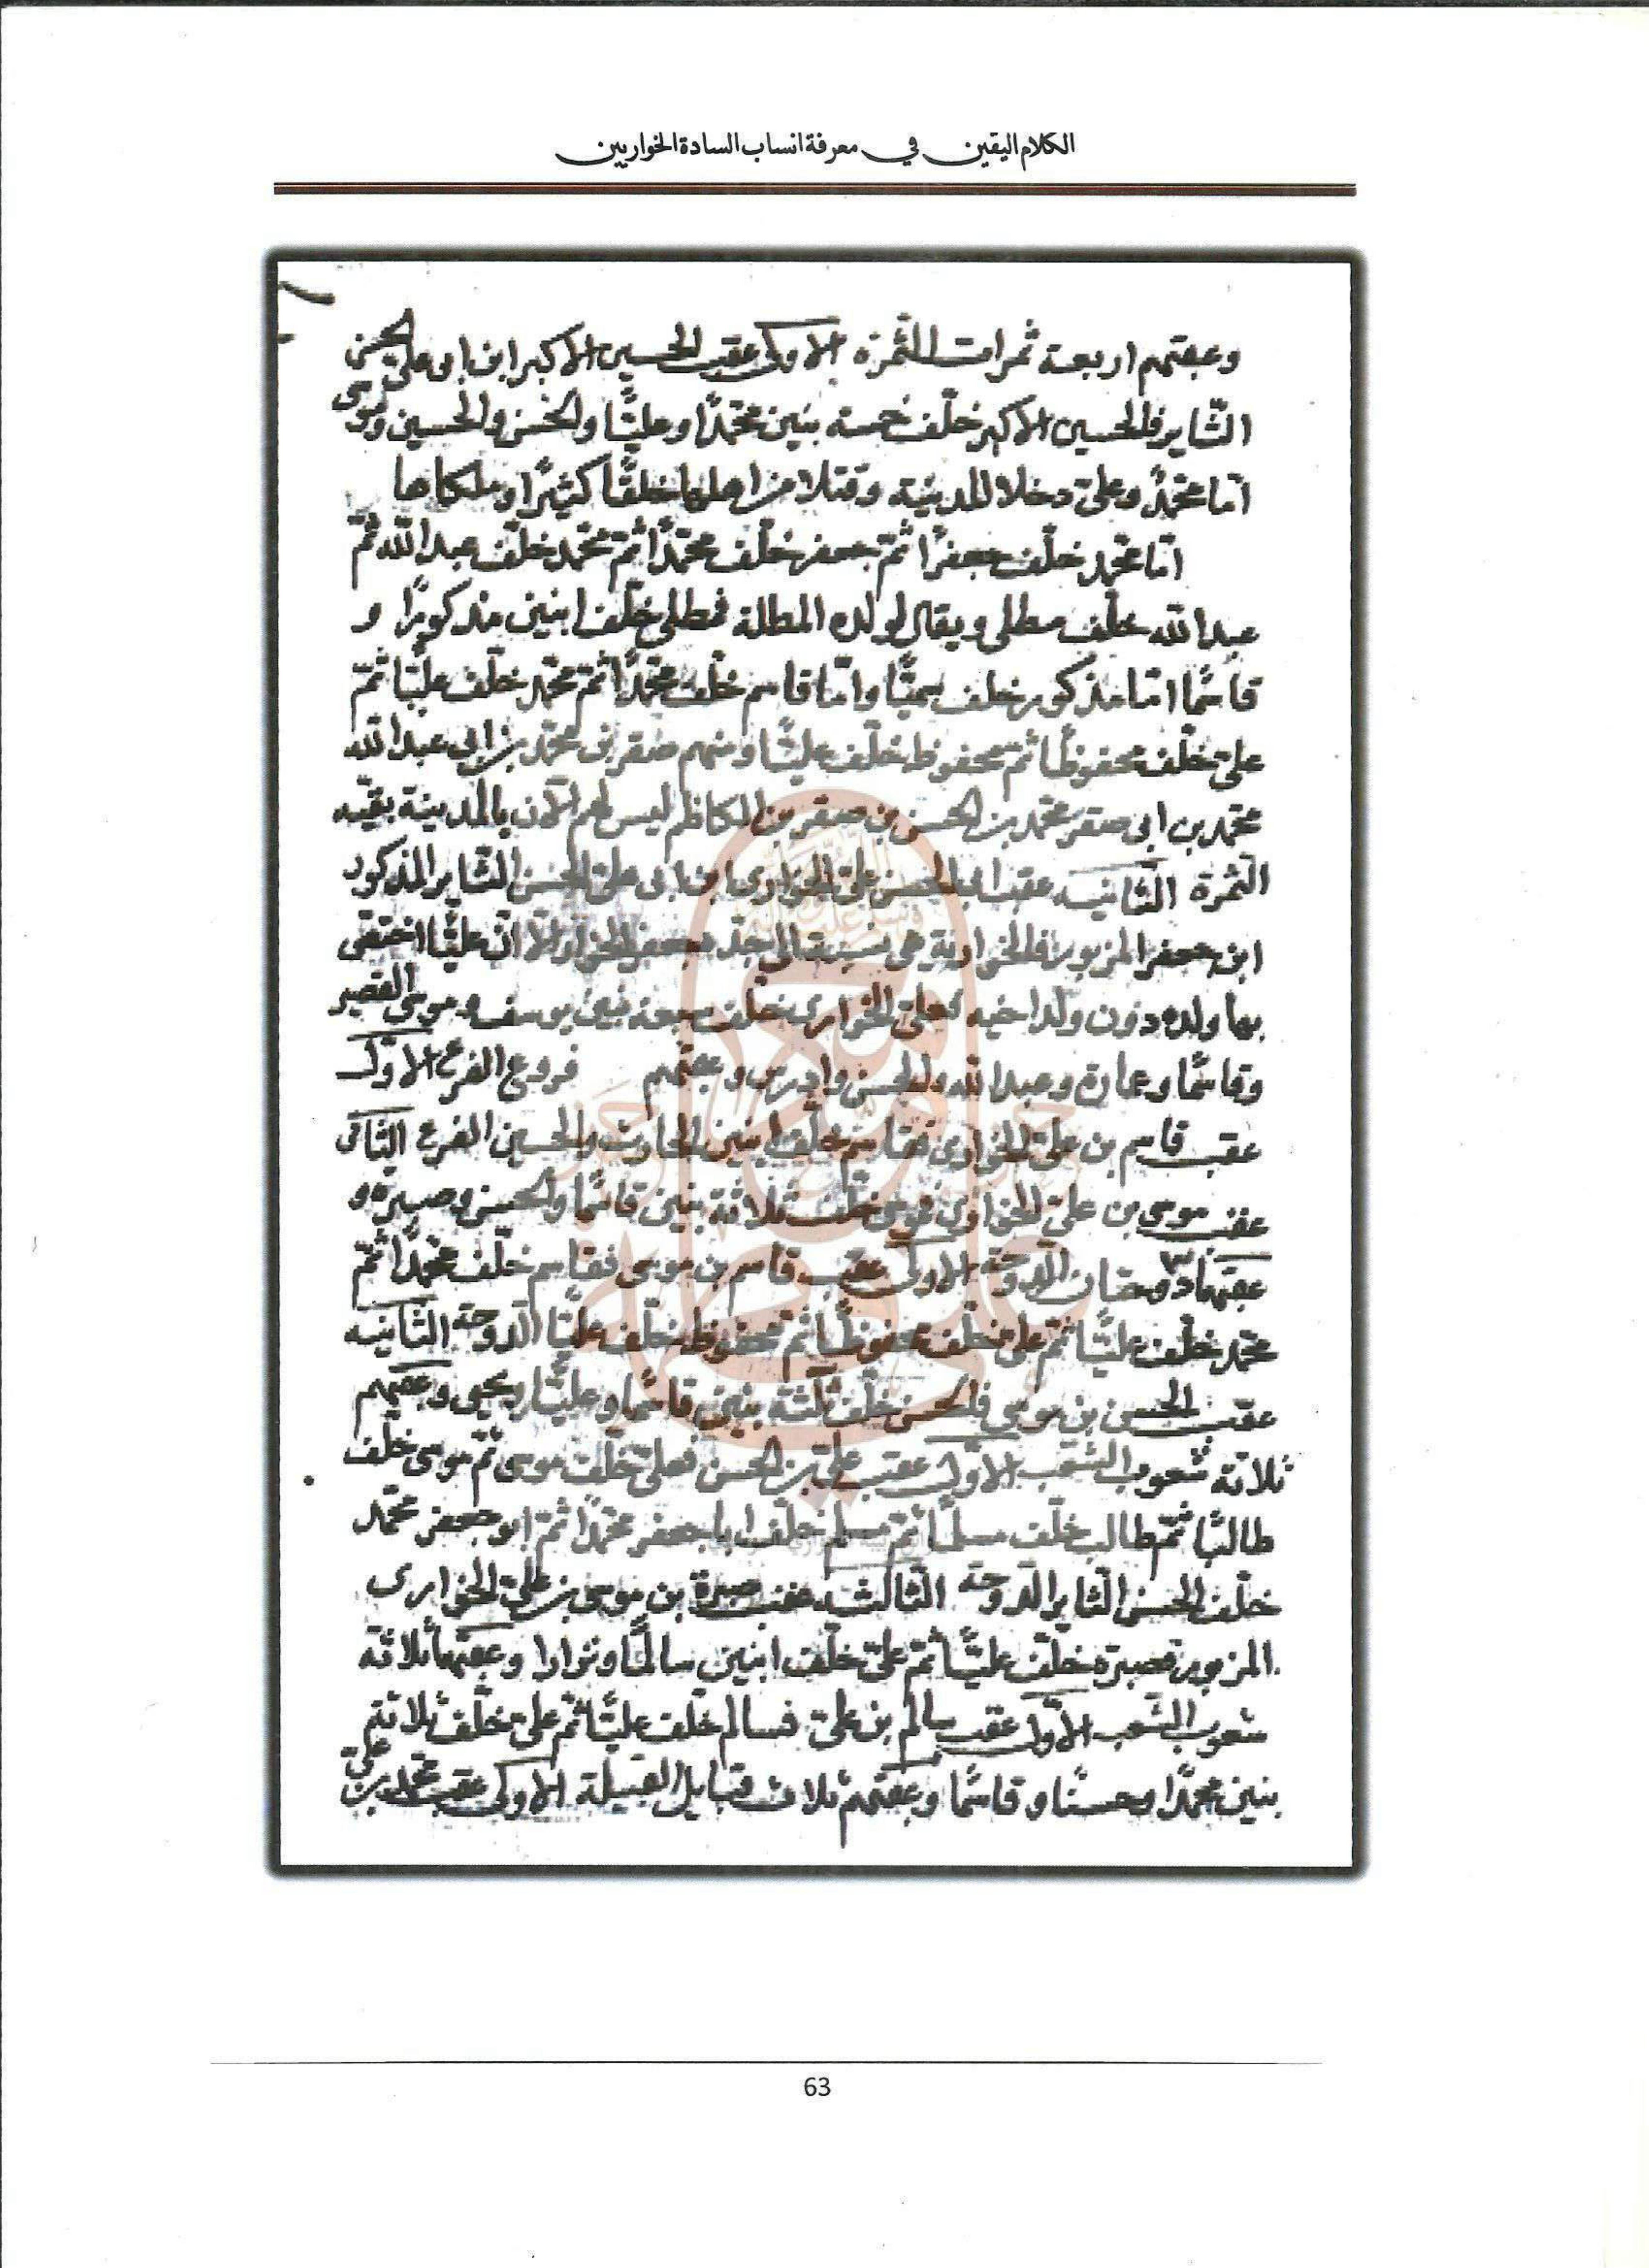 الكلام اليقين في معرفة انساب السادة الخواريين
وعقبهم اربعة ثمرات الثمرة الاولى عقب الحسين الاكبر ابن ابو علي الحسن
الثاير فالحسين الاكبر خلّف خمسة بنين محمدًا وعليًّا والحسن والحسين وموسى
امّا محمّدٌ وعلي دخلا المدينة وقتلا من اهلها خلقًا كثيرًا وملكاها
امّا محمد خلّف جعفرًا ثمّ جعفر خلّف محمّدًا ثمّ محمّد خلّف عبد الله ثمّ
عبد الله خلّف مطلى ويقال لولده المطلة فمطلى خلّف ابنين مذكورًا و
قاسمًا امّا مذكور خلف سميًّا وامّا قاسم خلّف محمّدًا ثمّ محمّد خلّف عليًّا ثمّ
علي خلّف محفوظًا ثمّ محفوظ خلّف عليًّا ومنهم صقر بن محمّد بن ابي عبد الله
محمّد بن ابي صقر محمّد بن الحسن بن صقر بن الكاظم ليس لهم الآن بالمدينة بقيّه
الثمرة الثّانيه عقب ابي الحسن علي الخوارى ابن ابى علي الحسن الثّاير المذكور
ابن جعفر المزبور فالخوارية هي نسبت الى جدّه جعفر الخوار الّا انّ عليًّا اختصّ
بها ولده دون ولد اخيه فعلي الخوارى خلّف سبعة بنين يوسف وموسى القصير
وقاسمًا وعمارة وعبد الله والحسن وادريس وعقبهم فروع الفرع الاوّل
عقب قاسم بن علي الخوارى فقاسم خلّف ابنين الحارث والحسين الفرع الثّانى
عقب موسى بن علي الخوارى فموسى خلّف ثلاثة بنين قاسمًا والحسن وصبرة و
عقبهما دوحتان الدوحة الاولى عقب قاسم بن موسى فقاسم خلّف محمّدًا ثمّ
محمّد خلّف عليًّا ثمّ علي خلّف محفوظًا ثمّ محفوظ خلّف عليًّا الدوحة الثّانيه
عقب الحسن بن موسى فالحسن خلّف ثلثة بنين قاسمًا وعليًّا ويحيى وعقبهم
ثلاثة شعوب الشعب الاوّل عقب علي بن الحسن فعلي خلّف موسى ثمّ موسى خلّف
طالبًا ثمّ طالب خلّف مسلمًا ثمّ مسلم خلّف ابا جعفر محمّدًا ثمّ ابو جعفر محمّد
خلّف الحسن الثاير الدوحة الثّالثه عقب صبرة بن موسى بن علي الخوارى
المزبور فصبره خلّف عليًّا ثمّ علي خلّف ابنين سالمًا ونوارا وعقبهما ثلاثة
شعوب الشعب الاوّل عقب سالم بن علي فسالم خلّف عليًّا ثمّ علي خلّف ثلاثة
بنين محمّدًا وحسنًا وقاسمًا وعقبهم ثلاث قبايل القبيلة الاولى عقب محمّد بن علي
63